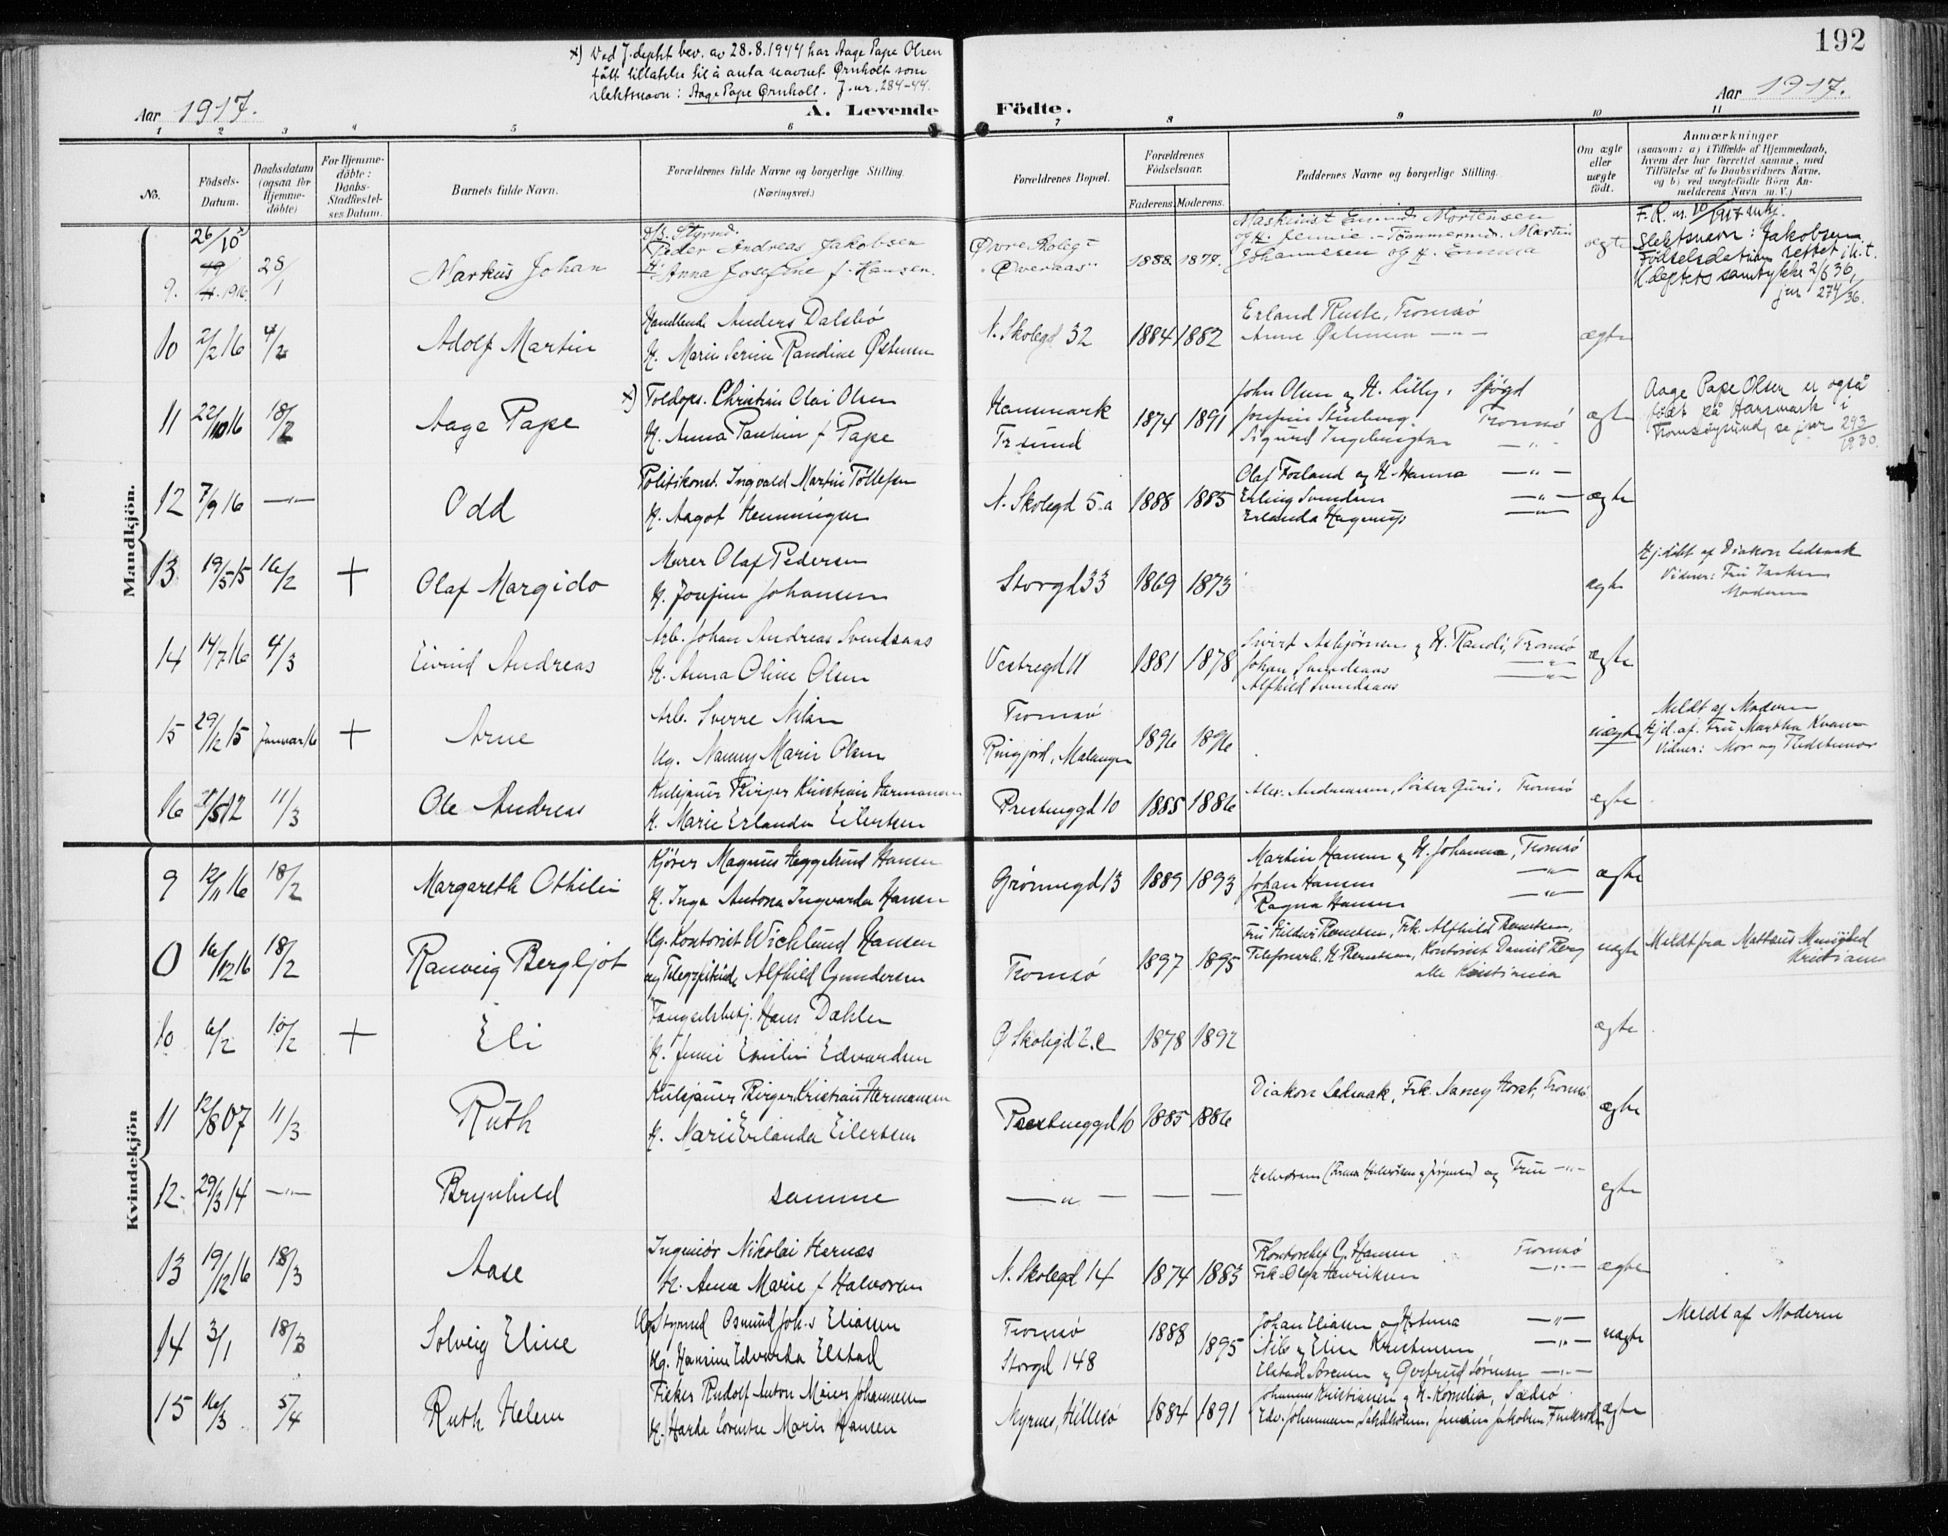 192
x) Ved J.depht bev. av 28.8.1944 har Aage Pape Olsen
fått tillatelse til å anta navnet Ørnholt som
slektsnavn: Aage Pape Ørnholt. J.nr. 284-44.
Aar 1917.
A. Levende Födte.
Aar 1917.
1 2 3 4 5 6 7 8 9 10 11
No.
Födsels-Datum.
Daabsdatum (ogsaa for Hjemme-döbte)
For Hjemme-döbte: Daabs-Stadfæstel-ses Datum.
Barnets fulde Navn.
Forældrenes fulde Navne og borgerlige Stilling. (Næringsvei.)
Forældrenes Bopæl.
Forældrenes Födselsaar.
Faderens. Moderens.
Faddernes Navne og borgerlige Stilling.
Om ægte eller uægte födt.
Anmærkninger
(saasom: a) i Tilfælde af Hjemmedaab, hvem der har forrettet samme, med Tilföielse af to Daabsvidners Navne, og b) ved uægtefödte Börn An-melderens Navn m. V.)
Mandkjön.
9. 26/10 1916 28/1 Markus Johan
Peder Andreas Jakobsen
H. Anna Josefine f. Hansen.
Øvre Skolegt "Øveraas" 1888 1879
Maskinist Mortensen
og H. Jennie - Tömmermd. Martin
Johannesen og H. Emma
ægte
Slektsnavn: Jakobsen
Födselsdatum rettet
samtykke 2/6 36,
jnr 274/36.
10 2/2 16 4/2 Adolf Martin
Handlende Anders Dalsbö
H. Marie Serine Randine Østensen
N. Skolegd 32 1884 1882
Erland Ruste, Tromsö
Anne Østensen —"—
ægte
11 22/10 16 18/2 Aage Pape
x) Toldops. Christian Olai Olsen
H. Anna Pauline f Pape
Hansmark
Tr.sund 1874 1891
John Olsen og H. Lilly, Sjøgd
Josefine Stenberg. Tromsö
Sigurd Ingebrigtsen —"—
ægte
Aage Pape Olsen er også
født på Hansmark i
Tromsöysund, se jnr 293/1930.
12 7/9 16 —"— Odd
Politikonst. Ingvald Martin Tollefsen
H. Aagot Henningsen
N. Skolegd 5.a 1888 1885
Olaf Forland og H. Hanna —"—
Erling Svendsen —"—
Erlanda Hagerup —"—
ægte
13 19/5 15 16/2 + Olaf Margido
Murer Olaf Pedersen
H. Josefine Johansen
Storgd 33 1869 1873
ægte
Hj.döbt af Diakon Ledsaak
Vidner: Fru
Moderen
14 14/7 16 4/3 Eivind Andreas
Arb. Johan Andreas Svendsaas
H. Anna Oline Olsen
Vestregd 11 1881 1878
Sivert Asbjörnsen og H. Randi, Tromsö
Johan Svendsaas —"—
Alfhild Svendsaas —"—
ægte
15 29/12 15 Januar 16 + Arne
Arb. Sverre Nilsen
Ug. Nanny Marie Olsen
Tromsö
Ringfjord, Malangen 1896 1896
uægte
Meldt af Moderen
Hjd. af Fru Martha Kvam
Vidner: Mor og Bedstemor
16 /5 12 11/3 Ole Andreas
Kulsjauer Birger Kristian Hermansen
H. Marie Erlanda Eilertsen
Prestenggd 10 1885 1886
Alex. Andreassen, Söster Guri, Tromsö
ægte
Kvindekjön
9 12/11 16 18/2 Margareth Othilie
Kjörer Magnus Heggelund Hansen
H. Inga Antona Ingvarda Hansen
Grönnegd 13 1889 1893
Martin Hansen og H. Johanna, Tromsö
Johan Hansen —"—
Ragna Hansen —"—
ægte
0 16/12 16 18/2 Ranveig Bergljot
Ug. Kontorist Wichlund Hansen
og Telegrafistinde Alfhild Gundersen
Tromsö 1897 1895
Fru Hildur Berntsen, Frk. Alfhild Berntsen,
Telefonarb. H Berntsen, Kontorist Daniel Berg
alle Kristiania
uægte
Meldt fra Mattæus Menighed
Kristiania
10 6/2 10/2 + Eli
Fængselsbetj. Hans Dahler
H. Jenni Emilie Edvardsen
Ø Skolegd 2.c 1878 1892
ægte
11 12/8 07 11/3 Ruth
Kulsjauer Birger Kristian Hermansen
H. Marie Erlanda Eilertsen
Prestenggd 10 1885 1886
Diakon Ledsaak, Frk. Nancy Horst, Tromsö
ægte
12 29/3 14 —"— Brynhild
samme
—"— — —
og Frue —"—
ægte
13 19/12 16 18/3 Aase
Ingeniör Nikolai Hernæs
H. Anna Marie f Halvorsen
N. Skolegd 14 1874 1883
Kontorchef G. Hansen Tromsö
Frk. Olga Henriksen —"—
ægte
14 3/1 18/3 Solveig Eline
Ug Styrmd Osmund Joh.s Eliasen
Ug. Hansine Edvarda Elstad
Tromsö
Storgd 148 1888 1895
Johan Eliasen og H. Anna —"—
Nils og Elise Kristensen —"—
Elstad Sörensen og Gertrud Sörensen —"—
uægte
Meldt af Moderen
15 16/3 5/4 Ruth Helene
Fisker Rudolf Anton Meier Johannesen
H. Harda Lorentse Marie Hansen
Myrnes, Hillesö 1884 1891
Johannes Kristiansen og H. Kornelia, Sandsö
Edv. Johannesen, Jakobsen
ægte